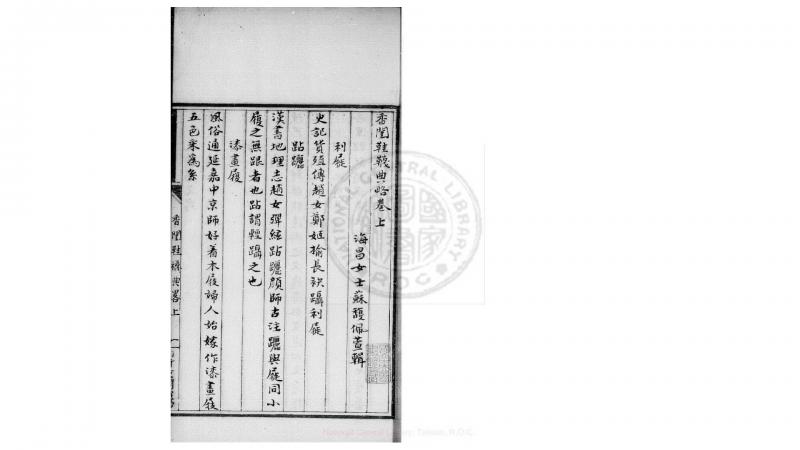 香閨鞋襪典略卷上
海昌女士蘇馥佩萱輯
利屣
史記貨殖傳趙女鄭姬揄長袂躡利屣
跕躧
漢書地理志趙女彈絃跕躧顏師古注躧與屣同小
履之無跟者也跕謂輕躡之也
漆畫屐
風俗通延嘉中京師好着木屐婦人始嫁作漆畫屐
五色采為系
香閨鞋襪典畧上
一
NATIONAL CENTRAL LIBRARY
R.O.C.
National Central Library, Taiwan, R.O.C.